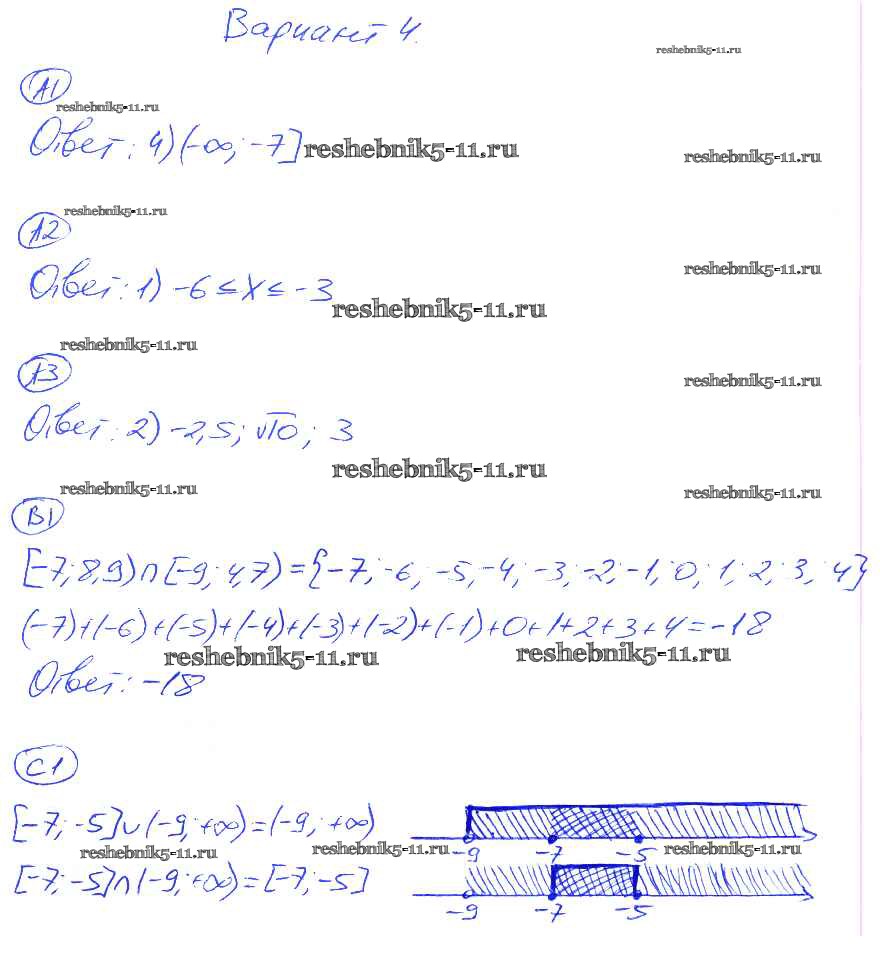 Вариант 4.
reshebnik5-11.ru
А1
reshebnik5-11.ru
Ответ: 4) (-∞; -7]
reshebnik5-11.ru
reshebnik5-11.ru
reshebnik5-11.ru
А2
reshebnik5-11.ru
Ответ: 1) -6 ≤ x ≤ -3
reshebnik5-11.ru
reshebnik5-11.ru
А3
reshebnik5-11.ru
Ответ: 2) -2,5; √10; 3
reshebnik5-11.ru
reshebnik5-11.ru
reshebnik5-11.ru
В1
[-7; 8,9) ∩ [-9; 4,7) = {-7; -6; -5; -4; -3; -2; -1; 0; 1; 2; 3; 4}
(-7)+(-6)+(-5)+(-4)+(-3)+(-2)+(-1)+0+1+2+3+4=-18
reshebnik5-11.ru
reshebnik5-11.ru
Ответ: -18
С1
[-7; -5] ∪ (-9; +∞) = (-9; +∞)
-9 -7 -5
reshebnik5-11.ru
reshebnik5-11.ru
reshebnik5-11.ru
[-7; -5] ∩ (-9; +∞) = [-7; -5]
-9 -7 -5